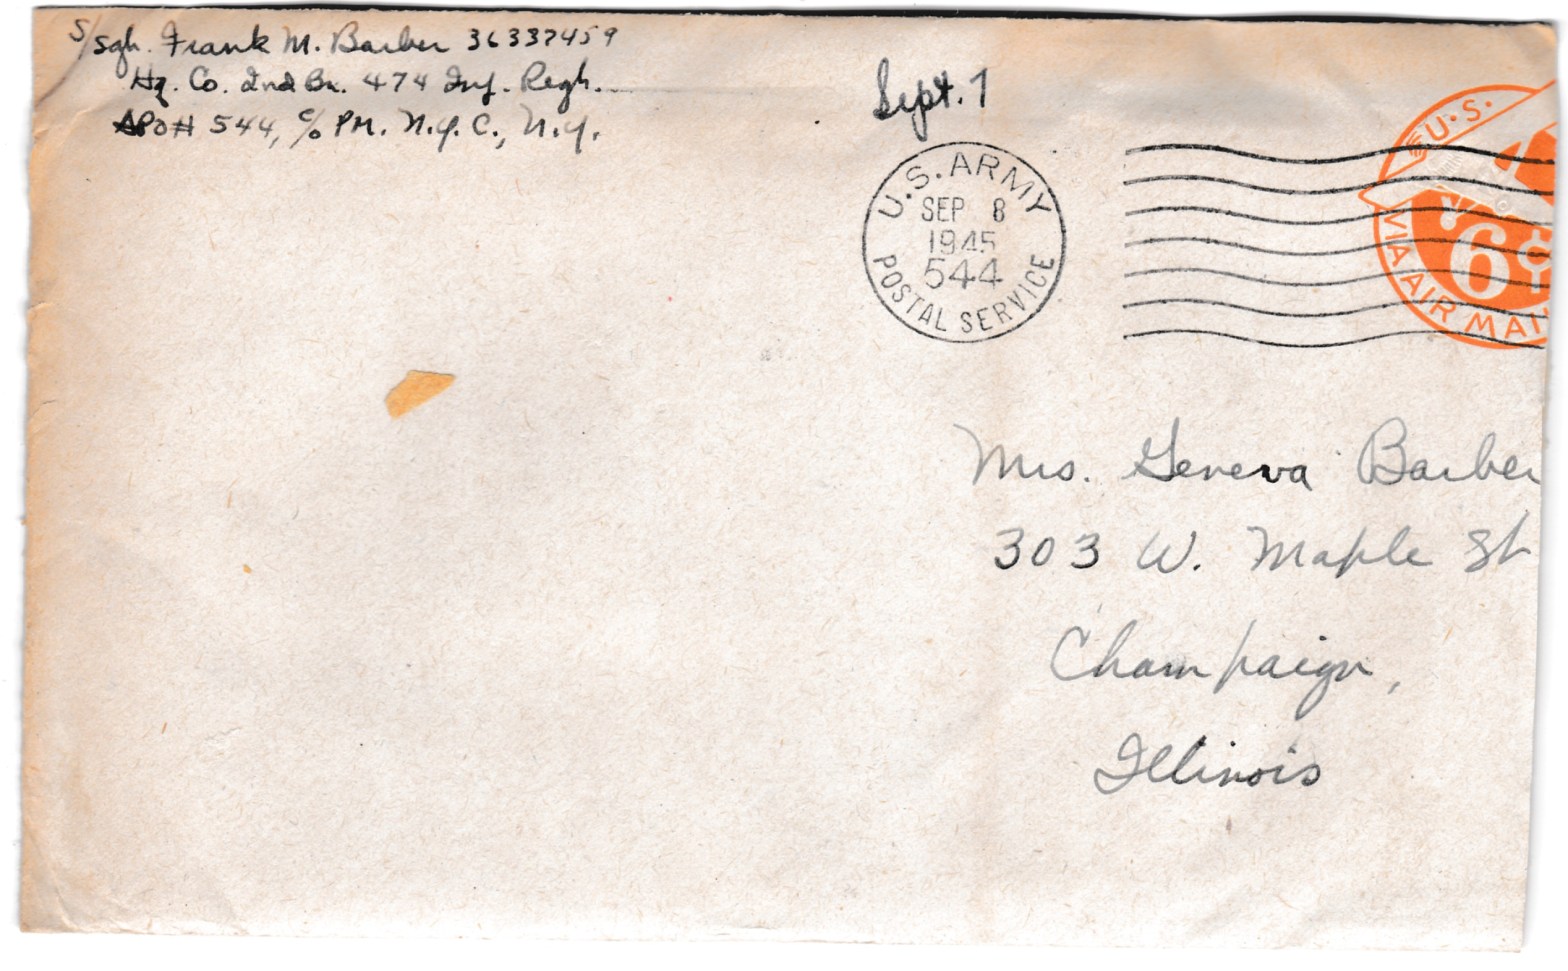 S/Sgt. Frank M. Barber 36337459
Hq. Co. 2nd Bn. 474 Inf. Regt.
APO# 544, c/o PM. N.Y.C., N.Y.
Sept. 7
U.S. ARMY
SEP 8
1945
544
POSTAL SERVICE
U.S.
6¢
VIA AIR MAIL
Mrs. Geneva Barber
303 W. Maple St
Champaign,
Illinois